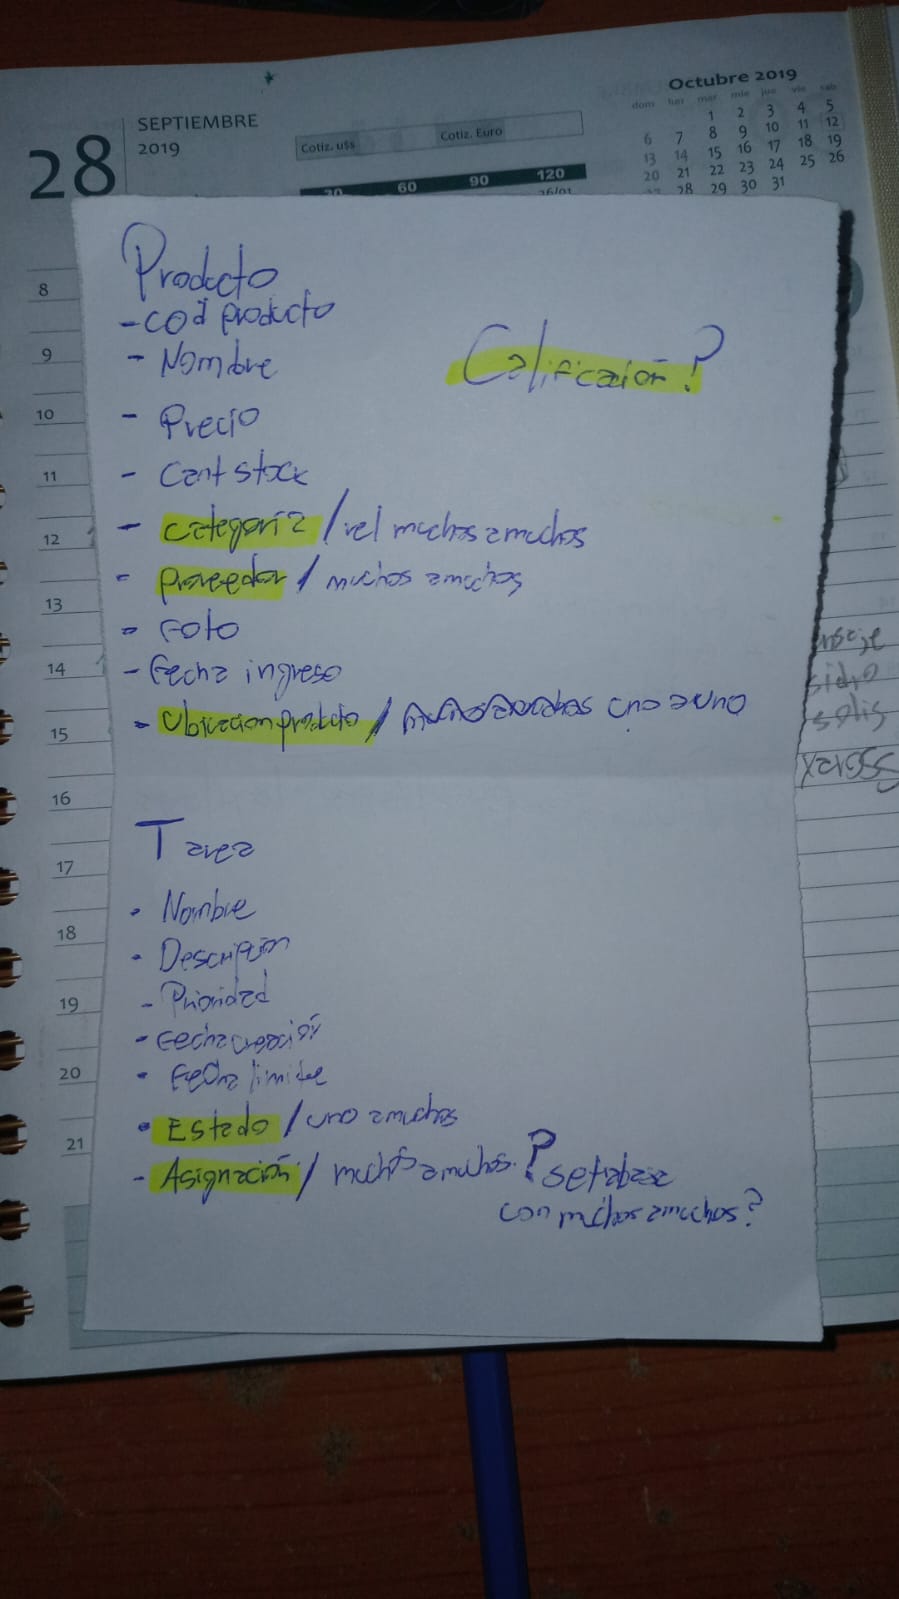 28
SEPTIEMBRE
2019
Cotiz. u$s
Cotiz. Euro
30 60 90 120
26/01
Octubre 2019
dom lun mar mie jue vie sab
1 2 3 4 5
6 7 8 9 10 11 12
13 14 15 16 17 18 19
20 21 22 23 24 25 26
27 28 29 30 31
8
9
10
11
12
13
14
15
16
17
18
19
20
21
Producto
- cod producto
- Nombre
Calificación?
- Precio
- Cant stock
- categoria / rel muchos a muchos
- proveedor / muchos a muchos
- Foto
- Fecha ingreso
- Ubicacion producto / uno a uno
Tarea
- Nombre
- Descripción
- Prioridad
- Fecha creación
- Fecha limite
- Estado / uno a muchos
- Asignación / muchos a muchos. ? se trabaja
con muchos a muchos?